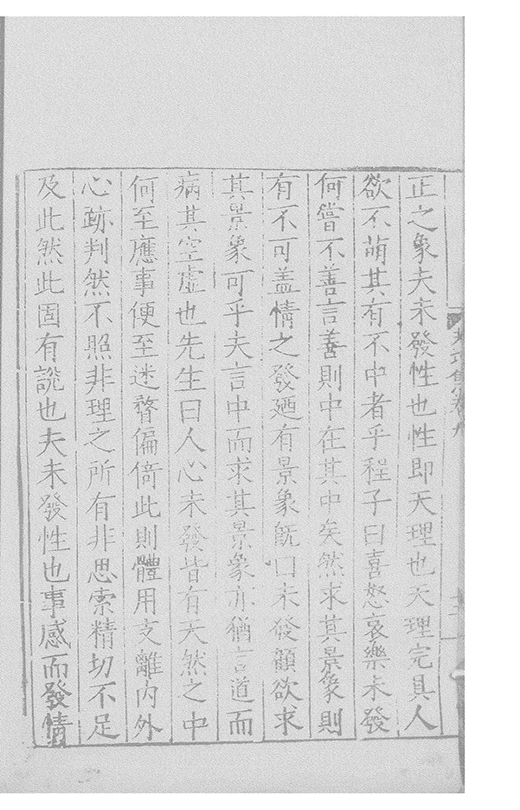 正之象夫未發性也性即天理也天理完具人
欲不萌其有不中者乎程子曰喜怒哀樂未發
何嘗不善言善則中在其中矣然求其景象則
有不可盖情之發廼有景象旣口未發顧欲求
其景象可乎夫言中而求其景象亦猶言道而
病其空虛也先生曰人心未發皆有天然之中
何至應事便至迷瞀偏倚此則體用支離内外
心跡判然不照非理之所有非思索精切不足
及此然此固有說也夫未發性也事感而發情